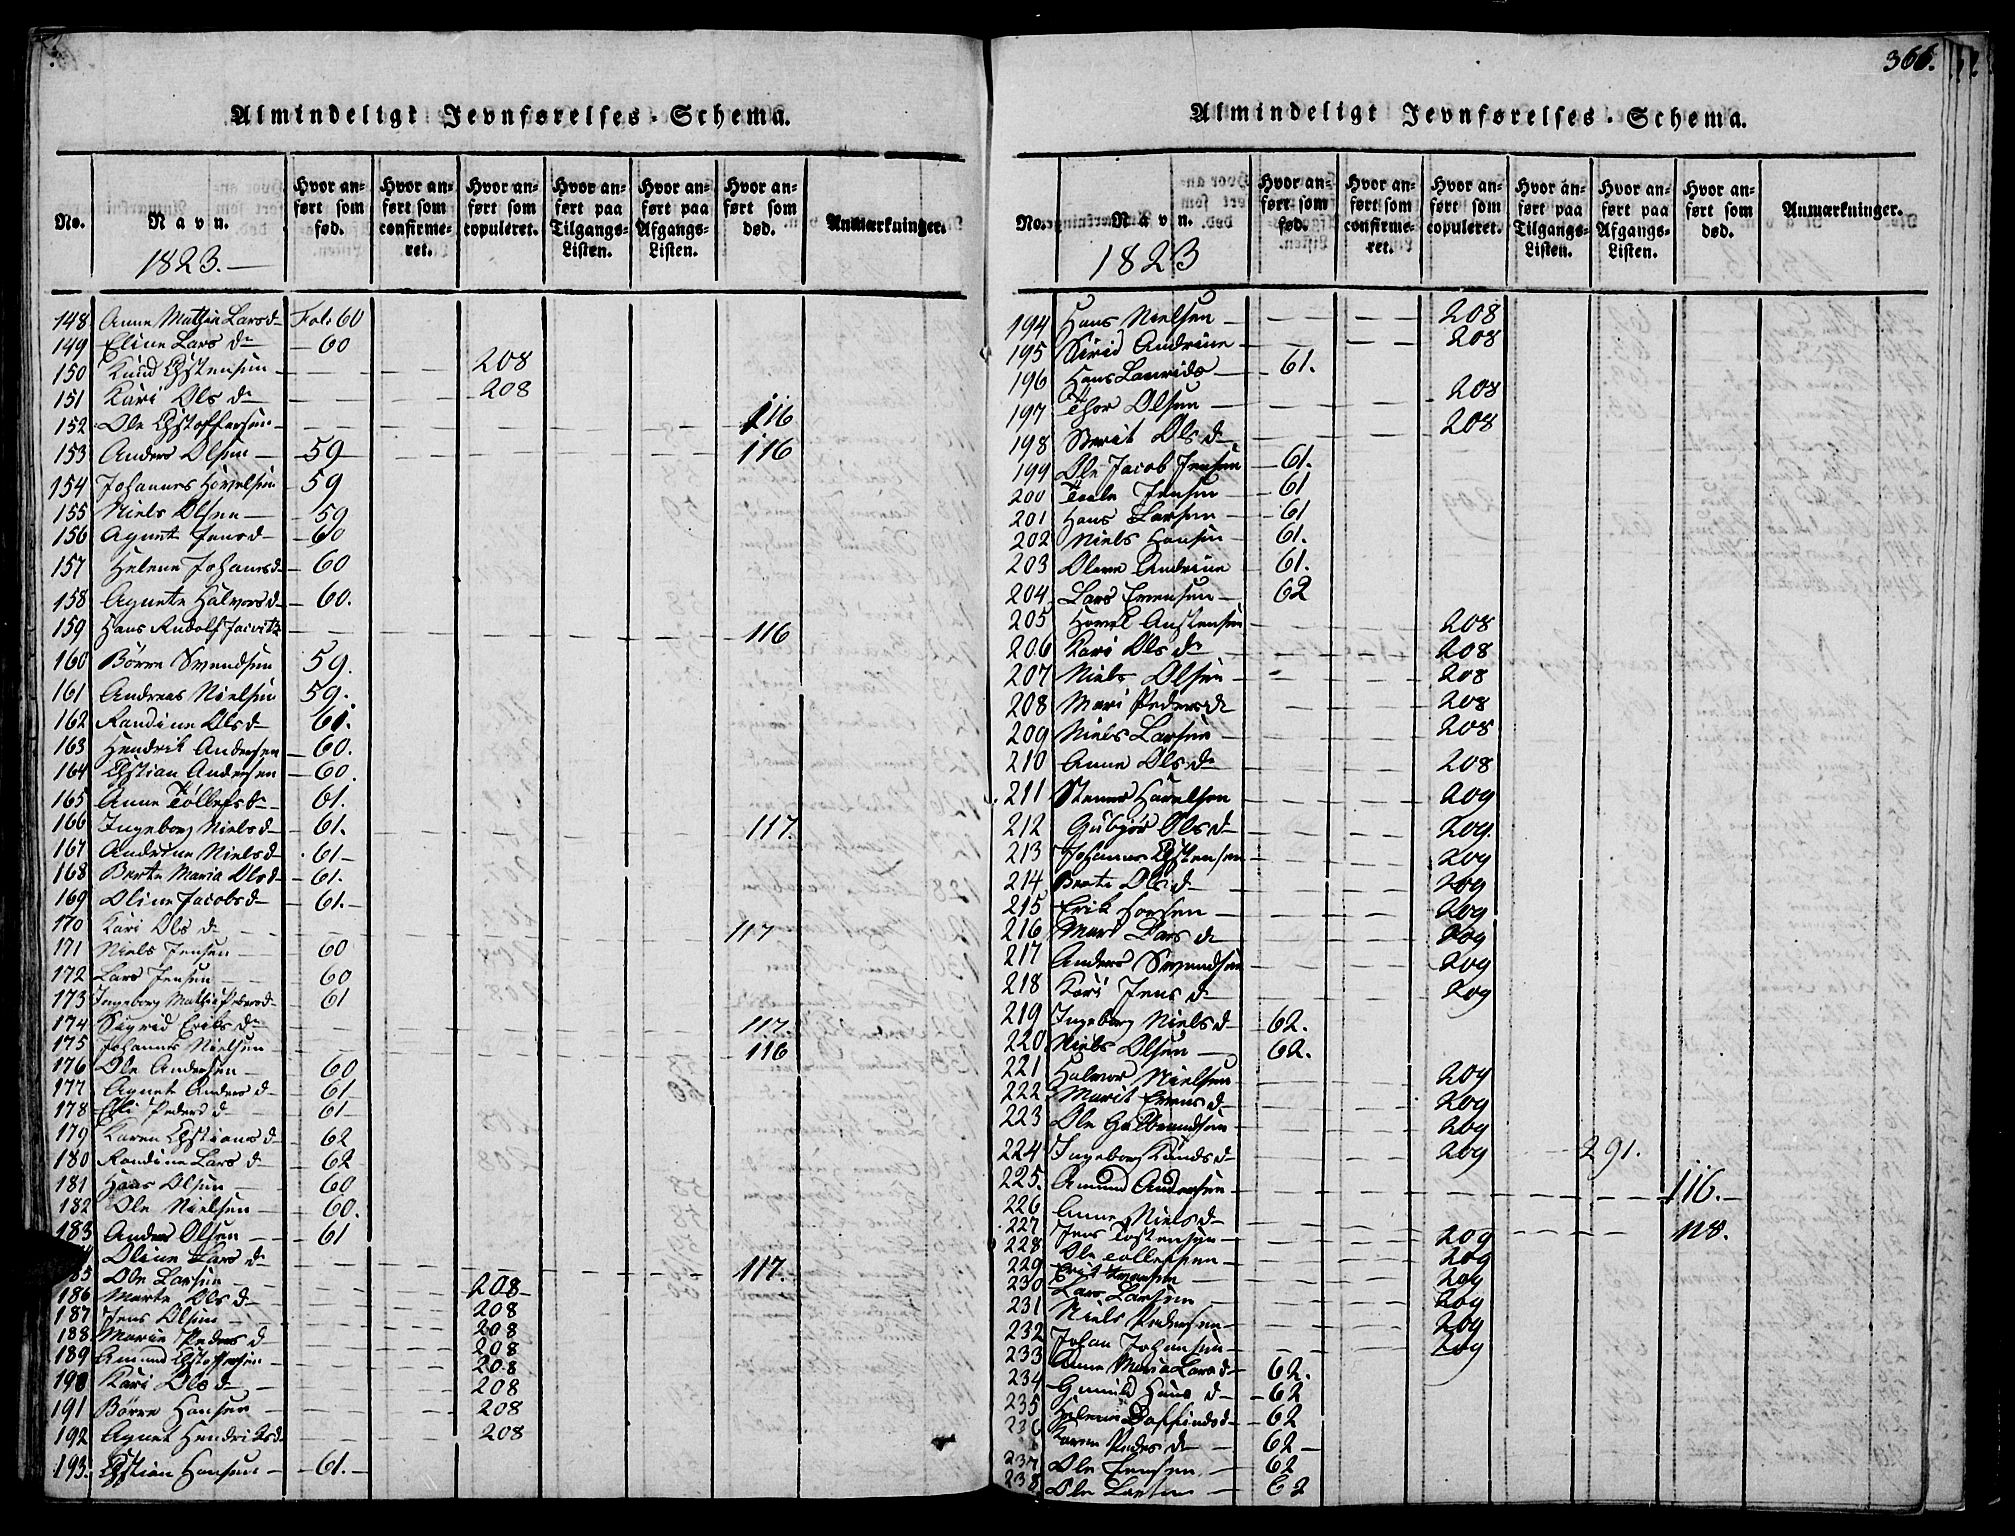 Almindeligt Jevnførelses-Schema.
No. Navn. Hvor anført som fød. Hvor anført som confirmeret. Hvor anført som copuleret. Hvor anført paa Tilgangs-Listen. Hvor anført paa Afgangs-Listen. Hvor anført som død. Anmærkninger.
1823.
148 Anne Mathia Larsd Fol. 60
149 Eline Lars d 60
150 Knud Christensen 208
151 Kari Ols d 208
152 Ole Christoffersen 116
153 Anders Olsen 59 116
154 Johannes Hovelsen 59
155 Niels Olsen 59
156 Agnete Jensd 60
157 Helene Johansd 60
158 Agnete Halvorsd 60.
159 Hans Rudolf 116
160 Børre Svendsen 59.
161 Andreas Nielsen 59.
162 Randine Olsd 61.
163 Hendrik Andersen 60.
164 Christian Andersen 60.
165 Anne Tollefsd 61.
166 Ingeborg Nielsd 61. 117.
167 Andrine Nielsd 61
168 Berte Maria Olsd 61.
169 Oline Jacobsd 61.
170 Kari Ols d 117
171 Niels Jensen 60
172 Lars Jensen 60
173 Ingeborg Mathia Pedersd 61
174 Sigrid Eriks d 117.
175 Johannes Nielsen 116
176 Ole Andersen 60
177 Agnet Anders d 61
178 Eli Peders d 61
179 Karen Christians d 62
180 Randine Lars d 62
181 Hans Olsen 60
182 Ole Nielsen 60.
183 Anders Olsen 61
Oline Lars d 117.
185 Ole Larsen 208
186 Marte Ols d 208
187 Jens Olsen 208
188 Marie Peders d 208
189 Amund Christoffersen 208
190 Kari Ols d 208
191 Børre Hansen 208
192 Agnet Hendriksd 208
193. Christian Hansen 61.
366.
Almindeligt Jevnførelses-Schema.
No. Navn. Hvor anført som fød. Hvor anført som confirmeret. Hvor anført som copuleret. Hvor anført paa Tilgangs-Listen. Hvor anført paa Afgangs-Listen. Hvor anført som død. Anmærkninger.
1823
194 Hans Nielsen 208
195 Sirid Andrine 208
196 Hans Laurids 61.
197 Thor Olsen 208
198 Berit Ols d 208
199 Ole Jacob Jensen 61.
200 Jensen 61
201 Hans Larsen 61
202 Niels Hansen 61.
203 Olave Andrine 61.
204 Lars Evensen 62
205 Hovel Austensen 208
206 Kari Ols d 208
207 Niels Olsen 208
208 Mari Pedersd 208
209 Niels Larsen 208
210 Anne Ols d 208
211 Stener Hovelsen 209
212 Gubjør Ols d 209.
213 Johannes Christensen 209
214 Berte Ols d 209
215 Erik 209
216 Mari Lars d 209
217 Anders Svendsen 209
218 Kari Jens d 209
219 Ingeborg Niels d 62.
220 Niels Olsen 62.
221 Halvor Nielsen 209
222 Marit Evens d 209
223 Ole Gulbrandsen 209
224 Ingeborg Knuds d 209 291.
225. Amund Andersen 116.
226 Anne Niels d
227 Jens Tostensen 209 118.
228 Ole Tollefsen 209
229 Erik 209
230 Lars Larsen 209
231 Niels Pedersen 209
232 Johan Johansen 209
233 Anne Maria Larsd 62.
234 Gunild Hans d 62
235 Helene Daffindsd 62
236 Karen Peders d 62
237 Ole Jensen 62
238 Ole Larsen 62